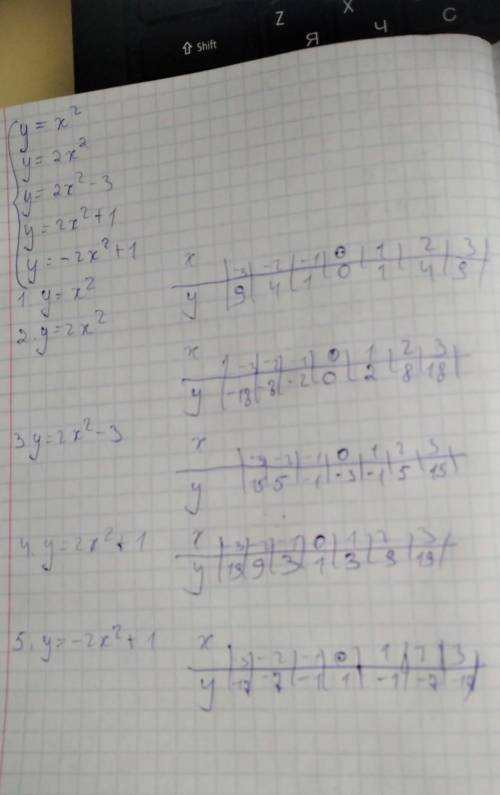 Z X
⇧ Shift Я Ч С
y = x²
y = 2x²
y = 2x² - 3
y = 2x² + 1
y = -2x² + 1
1. y = x²
x | -3 | -2 | -1 | 0 | 1 | 2 | 3
y | 9 | 4 | 1 | 0 | 1 | 4 | 9
2. y = 2x²
x | -3 | -2 | -1 | 0 | 1 | 2 | 3
y | -18 | -8 | -2 | 0 | 2 | 8 | 18
3. y = 2x² - 3
x | -3 | -2 | -1 | 0 | 1 | 2 | 3
y | 15 | 5 | -1 | -3 | -1 | 5 | 15
4. y = 2x² + 1
x | -3 | -2 | -1 | 0 | 1 | 2 | 3
y | 19 | 9 | 3 | 1 | 3 | 9 | 19
5. y = -2x² + 1
x | -3 | -2 | -1 | 0 | 1 | 2 | 3
y | -17 | -7 | -1 | 1 | -1 | -7 | -17